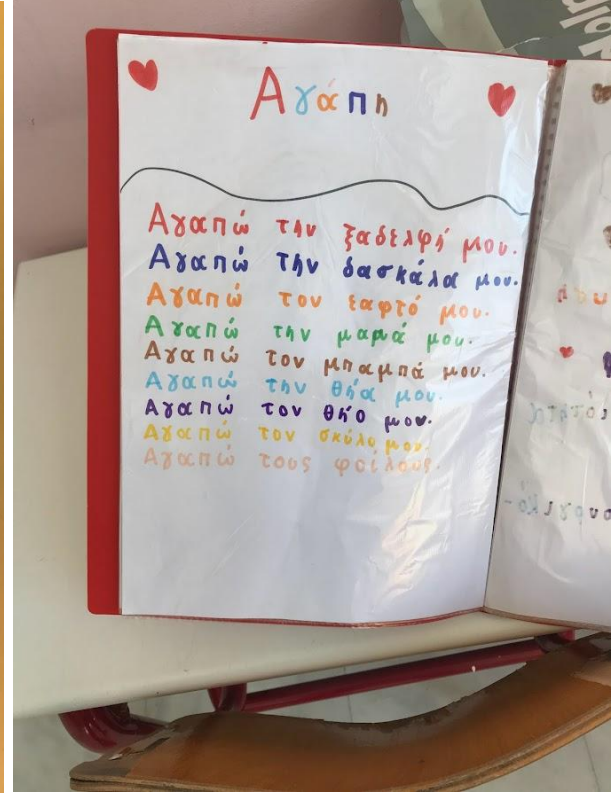 Αγάπη
Αγαπώ την ξαδελφή μου.
Αγαπώ την δασκάλα μου.
Αγαπώ τον εαφτό μου.
Αγαπώ την μαμά μου.
Αγαπώ τον μπαμπά μου.
Αγαπώ την θήα μου.
Αγαπώ τον θήο μου.
Αγαπώ τον σκύλο μου.
Αγαπώ τους φοίλους.